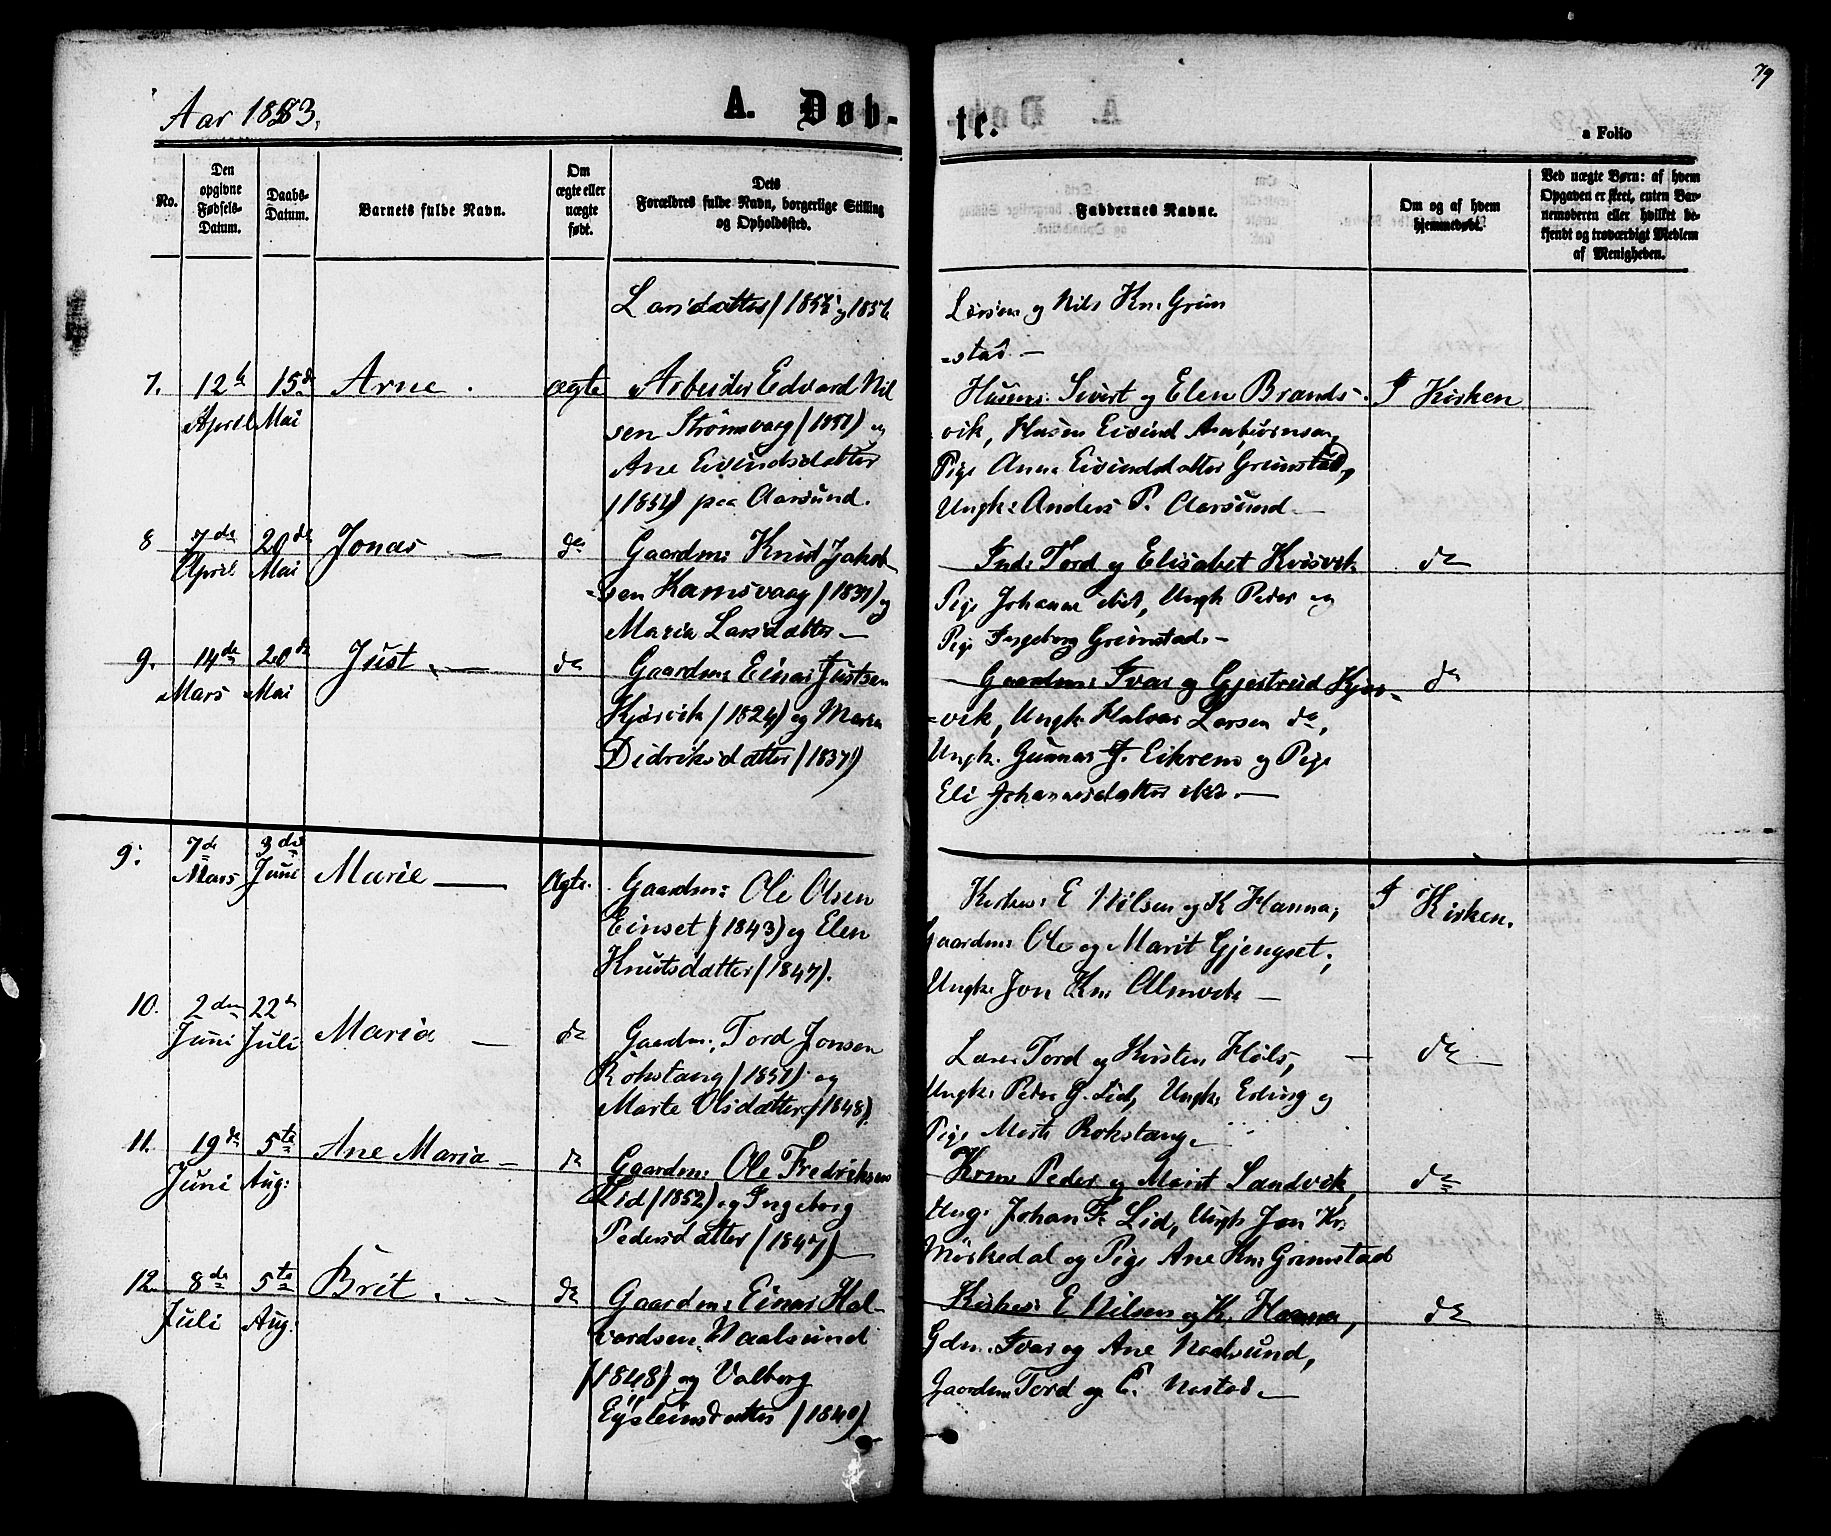 79
Aar 1883.
A. Døb-
te.
a Folio
No.
Den
opgivne
Fødsels-
Datum.
Daabs-
Datum.
Barnets fulde Navn.
Om
ægte eller
uægte
født.
Dets
Forældres fulde Navn, borgerlige Stilling
og Opholdssted.
Faddernes Navne.
Om og af hvem
hjemmedøbt.
Ved uægte Børn: af hvem
Opgaven er skeet, enten Bar-
nemoderen eller hvilket be-
kjendt og troværdigt Medlem
af Menigheden.
Larsdatter og
Larsen og Nils Kn. Grim
-stad. —
7.
12
April
15de
Mai
Arne.
ægte
Arbeider Edvard Nil
sen Strømsvaag (1851) og
Ane Eivindsdatter
(1854) paa Aarsund.
Husm: Sivert og Elen Brands-
vik, Husm Eivind
Pige Anne Eivindsdatter Grimstad,
Ungk: Anders P. Aarsund. —
I Kirken
8
7de
April
20de
Mai
Jonas —
do
Gaardm: Knud Jakob
-sen Ramsvaag (1831) og
Maria Larsdatter —
Ind: Tord og Elisabet Kvisvik
Pige Johanna ibid, Ungk Peder og
Pige Ingeborg Grimstad. —
do
9.
14de
Mars
20de
Mai
Just. —
do
Gaardm: Einar Justsen
Kjørsvik (1824) og Maria
Didriksdatter (1837)
Gaardm: Ivar og Gjertrud Kjørs-
-vik, Ungk. Halvar Larsen do,
Ungk. Gunnar J. Eikrem og Pige
Eli Johannesdatter ibid. —
do
9.
7de
Mars
3die
Juni
Marie —
Ægte.
Gaardm: Ole Olsen
Einset (1843) og Elen
Knutsdatter (1847).
Kirkes: E Nilsen og K Hanna,
Gaardm: Ole og Marit Gjengset,
Ungk: Jon Kn. Almvik —
I Kirken.
10.
2den
Juni
22de
Juli
Maria —
do
Gaardm: Tord Jonsen
Rokstang (1851) og
Marte Olsdatter (1848).
Tord og Kirsten Hals,
Ungk: Peder G. Lid, Ungk: Erling og
Pige Marte Rokstang.
do —
11.
19de
Juni
5te
Aug:
Ane Maria —
do
Gaardm: Ole Fredriksen
Lid (1852) og Ingeborg
Pedersdatter (1847) —
Peder og Marit Sandvik,
Ung: Johan F. Lid, Ungk Jon Kr.
Mørkedal og Pige Ane Kn. Grimstad
do
12.
8de
Juli
5te
Aug:
Brit. —
do
Gaardm: Einar Hal-
vordsen Naalsund
(1848) og Valborg
Eysteinsdatter (1840)
Kirkes: E Nilsen og K. Hanna,
Gdm. Ivar og Ane Naalsund,
Gaardm Tord og E. Nastad. —
do